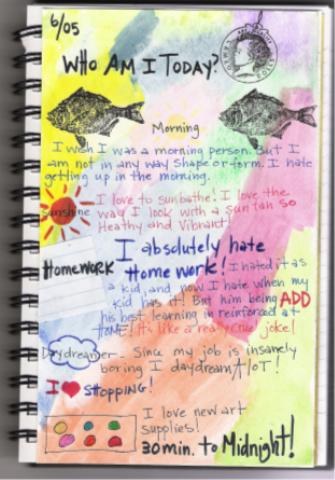 6/05
WHO AM I TODAY?
Morning
I wish I was a morning person. But I
am not in any way shape or form. I hate
getting up in the morning.
I love to sunbathe! I love the
Sunshine way I look with a suntan so
Heathy and Vibrant!
I absolutely hate
HOMEWORK Home work! I hated it as
a kid, and now I hate when my
kid has it! But him being ADD
his best learning in reinforced at
HOME! It's like a really cruel joke!
Daydreamer - Since my job is insanely
boring I daydream A lOT!
I ♥ SHOPPING!
I love new art
supplies!
30 min. to Midnight!